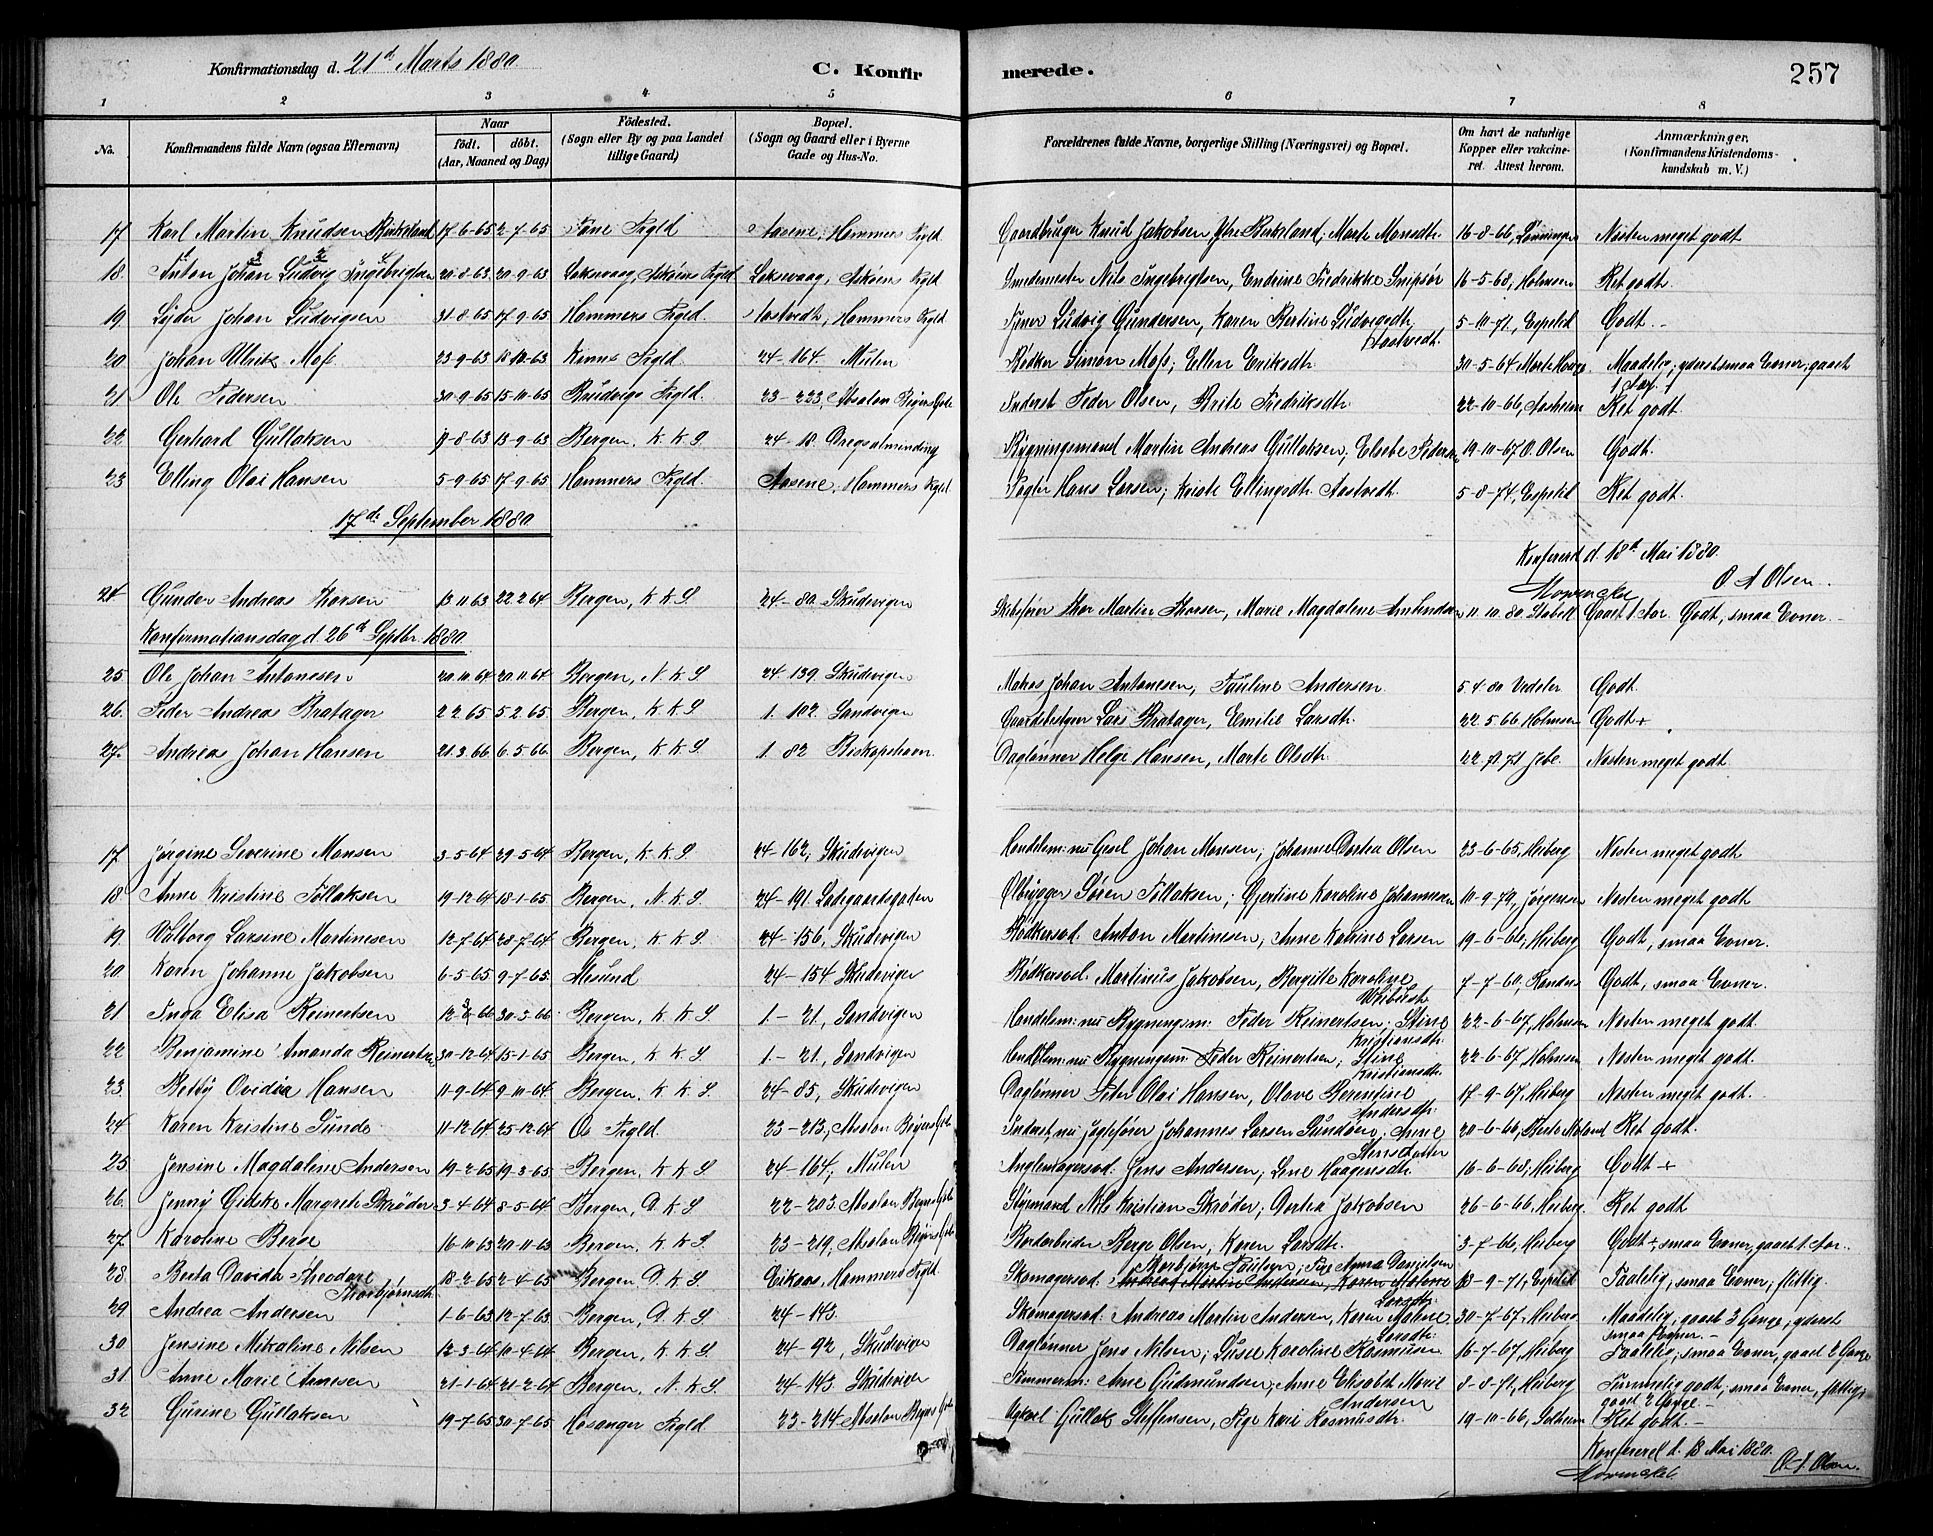 Konfirmationsdag d. 21d Marts 1880
C. Konfirmerede.
257
1 2 3 4 5 6 7 8
No.
Konfirmandens fulde Navn (ogsaa Efternavn)
Naar
födt. döbt.
(Aar, Maaned og Dag)
Födested.
(Sogn eller By og paa Landet tillige Gaard)
Bopæl.
(Sogn og Gaard eller i Byerne Gade og Hus-No.
Forældrenes fulde Navne, borgerlige Stilling (Næringsvei) og Bopæl.
Om havt de naturlige Kopper eller vakcineret. Attest herom.
Anmærkninger,
(Konfirmandens Kristendomskundskab m. V.)
17 Karl Martin Knudsen Birkeland 17-6-65 2-7-65 Fane Prgld Aasene, Hammers Prgld. Gaardbruger Knud Jakobsen Ytre Birkeland; Marte Monsdtr. 16-8-66, Lønningen Næsten meget godt
18. Anton Johan Ludvig Ingebrigtsen 20-8-63 20-9-63 Laksevaag, Askøens Prgld Laksevaag, Askøens Prgld Smedmester Nils Ingebrigtsen, Endrine Fredrikke Snipsør 16-5-68, Holmsen Ret godt.
19 Lyder Johan Ludvigsen 31-8-65 17-9-65 Hammers Prgld. Aastvedt, Hammers Prgld Tjener Ludvig Gundersen, Karen Bertine Ludvigsdtr. Aastvedt. 5-10-71, Espelid Godt.
20 Johan Ulrik Moss 23-9-63 18-10-63 Kinns Prgld 24-164. Mulen Bødker Simon Moss; Ellen Eriksdtr. 30-5-64, Maadelig, yderst smaa Evner, gaaet 1 Aar.
21 Ole Pedersen 30-9-65 15-10-65 Prgld. 23-223, Absalon Beyers Gde Inderst Peder Olsen, Brite Fredriksdtr. 22-10-66, Aasheim Ret godt.
22 Gerhard Gullaksen 17-8-63 13-9-63 Bergen, K. K. S. 24-18 Dregsalmending Bygningsmand Martin Andreas Gullaksen, Elsebe Pedersen 19-10-67 O. Olsen Godt.
23 Elling Olai Hansen 5-9-65 17-9-65 Hammers Prgld. Aasene, Hammers Prgld Hans Larsen; Ellingsdtr. Aastvedt. 5-8-74, Espelid Ret godt.
17d September 1880
Konfereret d. 18d Mai 1880.
Mowinckel O A Olsen.
24 Gunder Andreas Thorsen 13 11 63 22 2 64 Bergen, K. K. S. 24-80 Skudevigen Skibsfører Thor Martin Thorsen, Marie Magdalene Amundsen 11-10-80 Stabell Gaaet 1 Aar. Godt, smaa Evner.
Konfirmationsdag d. 26d Septbr. 1880
25 Ole Johan Antonesen 20 10 64 20 11 64 Bergen, N. K. S 24-139. Skudevigen Matros Johan Antonesen, Pauline Andersen. 5.4.80 Vedeler Godt.
26. Peder Andreas Bratager 2 2 65 5 2 65. Bergen, K. K. S. 1. 102. Sandvigen Gaardbestyrer Lars Bratager, Emilie Larsdtr. 22.5.66 Holmsen Godt+
27. Andreas Johan Hansen 21.3.66 6.5.66. Bergen, K. K S. 1. 82 Biskopshavn. Daglønner Helge Hansen, Marte Olsdtr. 22.71 Jebe Næsten meget godt.
17 Jørgine Severine Monsen 3-5-64 29-5-64 Bergen, K. K. S. 24-162, Skudevigen Handelsm: nu Gesel Johan Monsen; Johanne Dortea Olsen 23-6-65, Heiberg Næsten meget godt
18 Anne Kristine Tollaksen 19-12-64 18-1-65 Bergen, N. K. S. 24-191 Ladegaardsgaden Ølbrygger Søren Tollaksen; Gjertine Karoline Johannesen 10-9-79, Jørgensen Næsten meget godt
19 Valborg Larsine Martinesen 12-7-64 28-7-64 Bergen, K. K. S. 24-156, Skudevigen Bødkersvd. Anton Martinesen, Anne Katrine Larsen 19-6-66, Heiberg Godt, smaa Evner.
20 Karen Johanne Jakobsen 6-5-65 9-7-65 Alesund 24-154 Skudevigen Bødkersvd. Martinus Jakobsen, Bergitte Karoline 7-7-60, Randers Godt, smaa Evner.
21 Inga Elisa Reinertsen 12-66 30-3-66. Bergen, K. K S 1-21, Sandvigen Handelsm: nu Bygningsm: Peder Reinertsen; Stine Kristiansdtr. 22-6-67, Holmsen Næsten meget godt.
22 Benjamine Amanda Reinertsen 30-12-64 15-1-65 Bergen, K. K S. 1-21, Sandvigen Handelsm: nu Bygningsm: Peder Reinertsen; Stine Kristiansdtr. 22-6-67, Holmsen Næsten meget godt.
23. Betsy Ovidia Hansen 11-9-64 9-10-64 Bergen, K. K. S. 24-85, Skudevigen Dagløner Peter Olai Hansen, Olave Berentine Andersdtr. 17-9-67, Heiberg Næsten meget godt.
24 Karen Kristine Sundø 11-12-64 25-12-64 Os Prgld. 23-213, Absalon Beyers Gde Inderst, nu Jagtefører Johannes Larsen Sundøen; Anne Stensdatter 20-6-66, Ret godt.
25 Jensine Magdaline Andersen 19-2-65 19-3-65 Bergen, K. K S 24-164, Mulen Anglemagersvd. Jens Andersen; Lene Haagensdtr. 16-6-68, Heiberg Godt +
26. Jenny Gidske Margrete Skrøder 3-4-64 8-5-64 Bergen, D. K S 22-203. Absalon Beyers Gde Styrmand Nils Kristian Skrøder; Dortea Jakobsen 26-6-66, Heiberg. Ret godt
27. Karoline Berge 16-10-63 20-11-63 Bergen, K. K S. 23-219, Absalon Beyers Gde Berge Olsen, Karen Larsdtr. 3-7-66, Heiberg Godt+, smaa Evner, gaaet 1 Aar.
28 Berta Davida Theodore Thorbjørnsdtr. 18-2-65 2-4-65 Bergen D. K S. Eikaas, Hammers Prgld Skomagersvd: Thorbjørn Pige Anna Danielsen 13-9-71, Espelid Taalelig, smaa Evner, flittig.
29 Andrea Andersen 1-6-63 12-7-63 Bergen, D. K S 24-143. Skomagersvd: Andreas Martin Andersen, Karen Malene Larsdtr. 30-7-67, Heiberg Maadelig, gaaet 3 Gange, yderst smaa Evner.
30 Jensine Mikaline Nilsen 12-3-64 10-4-64 Bergen, K. K S. 24-92, Skudevigen Dagløner Jens Nilsen; Karoline Rasmusen 16-7-67, Heiberg Taalelig, smaa Evner, gaaet 2 Gange
31 Anne Marie Arnesen 21-1-64 21-2-64 Bergen, N. K S. 24-143. Skudevigen Tømmerm: Arne Gudmundsen; Anne Elisabet Marie Andersen 8-8-71, Heiberg Temmelig godt, smaa Evner, flittig, gaaet 2 Gange
32 Gurine Gullaksen 19-7-65 30-7-65 Hosanger Prgld 23-214 Absalon Beyers Gde Ugkarl Gullak Steffensen, Pige Kari Rasmusdtr. 19-10-66, Ret godt.
Konfereret d. 18 Mai 1880.
Mowinckel O. A. Olsen.